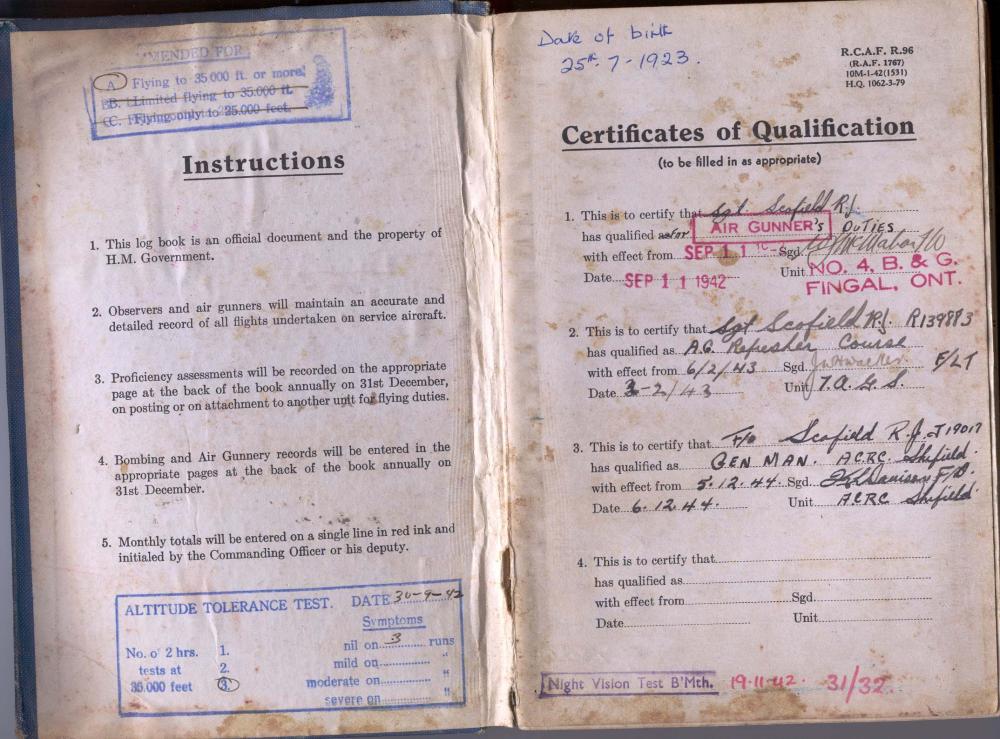 MENDED FOR
A. Flying to 35000 ft. or more!
B. Limited flying to 35.000 ft.
C. Flying only to 25.000 feet.
Instructions
1. This log book is an official document and the property of
H.M. Government.
2. Observers and air gunners will maintain an accurate and
detailed record of all flights undertaken on service aircraft.
3. Proficiency assessments will be recorded on the appropriate
page at the back of the book annually on 31st December,
on posting or on attachment to another unit for flying duties.
4. Bombing and Air Gunnery records will be entered in the
appropriate pages at the back of the book annually on
31st December.
5. Monthly totals will be entered on a single line in red ink and
initialed by the Commanding Officer or his deputy.
ALTITUDE TOLERANCE TEST. DATE 30-9-42
Symptoms
No. of 2 hrs. 1. nil on 3 runs
tests at 2. mild on "
35.000 feet 3. moderate on "
severe on "
Date of birth
25th. 7-1923.
R.C.A.F. R.96
(R.A.F. 1767)
10M-1-42 (1531)
H.Q. 1062-3-79
Certificates of Qualification
(to be filled in as appropriate)
1. This is to certify that Sgt Scofield R.J.
has qualified as for AIR GUNNER's DUTIES
with effect from SEP 11 Sgd.
Date SEP 11 1942 Unit NO. 4, B. & G.
FINGAL, ONT.
2. This is to certify that Sgt Scofield R.J. R139883
has qualified as A.G. Refresher Course
with effect from 6/2/43 Sgd. F/LT
Date 3-2/43 Unit T.A.G.S.
3. This is to certify that F/O Scofield R.J. J19017
has qualified as GEN MAN. ACRC. Shefield.
with effect from 5.12.44 Sgd. F/O.
Date 6.12.44. Unit ACRC Shefield.
4. This is to certify that
has qualified as
with effect from Sgd.
Date Unit
Night Vision Test B'Mth. 19.11.42. 31/32.